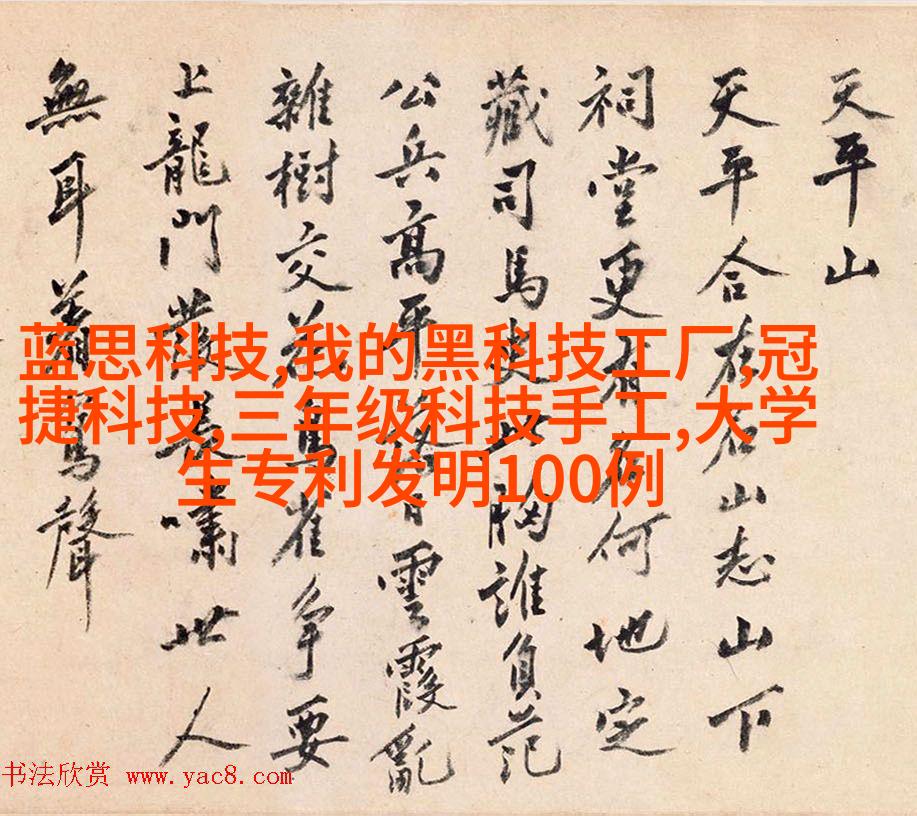 天平山
天平合在名山志山下
祠堂更有何地定
藏司馬史此胸誰負范
公兵高平雲霞亂
雜樹交花鳥雀争要
上龍門發長嘯世人
無耳聲
蓝思科技,我的黑科技工厂,冠
捷科技,三年级科技手工,大学
生专利发明100例
书法欣赏 www.yac8.com